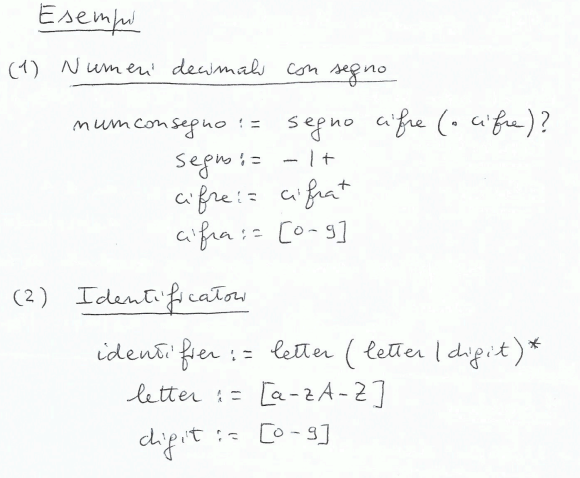 Esempi
(1) Numeri decimali con segno
numconsegno := segno cifre (. cifre)?
segno := - | +
cifre := cifra+
cifra := [0-9]
(2) Identificatori
identifier := letter (letter | digit)*
letter := [a-zA-Z]
digit := [0-9]